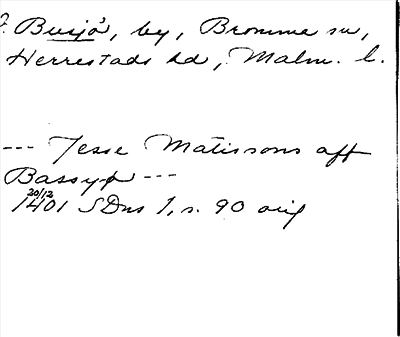 ? Bussjö, by, Bromma sn,
Herrestads hd, Malm. l.
--- Jesse Matissons aff
Bassyø ---
20/12
1401 SDns 1, s. 90 orig